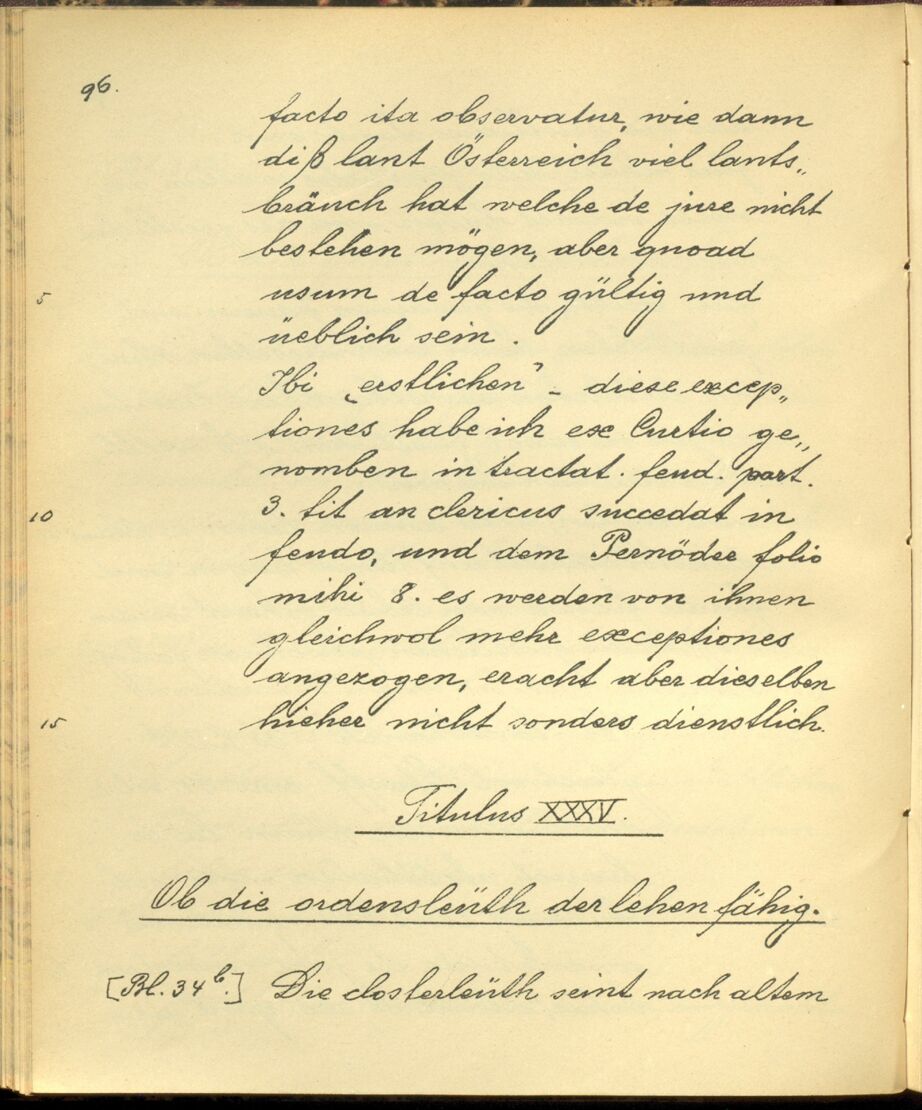 96.
facto ita observatur, wie dann
diß lant Österreich viel lants„
bräuch hat welche de jure nicht
bestehen mögen, aber quoad
5 usum de facto gültig und
üeblich sein.
Ibi „erstlichen” – diese excep„
tiones habe ich ex Curtio ge„
nomben in tractat. feud. part.
10 3. tit an clericus succedat in
feudo, und dem Pernöder folio
mihi 8. es werden von ihnen
gleichwol mehr exceptiones
angezogen, eracht aber dieselben
15 hieher nicht sonders dienstlich.
Titulus XXXV.
Ob die ordensleüth der lehen fähig.
[Bl. 34b.] Die closterleüth seint nach altem